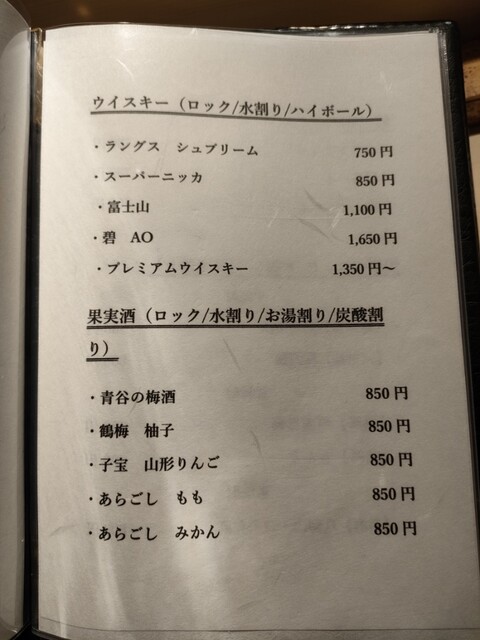 ウイスキー（ロック/水割り/ハイボール）
・ラングス　シュプリーム 750円
・スーパーニッカ 850円
・富士山 1,100円
・碧　AO 1,650円
・プレミアムウイスキー 1,350円～
果実酒（ロック/水割り/お湯割り/炭酸割
り）
・青谷の梅酒 850円
・鶴梅　柚子 850円
・子宝　山形りんご 850円
・あらごし　もも 850円
・あらごし　みかん 850円